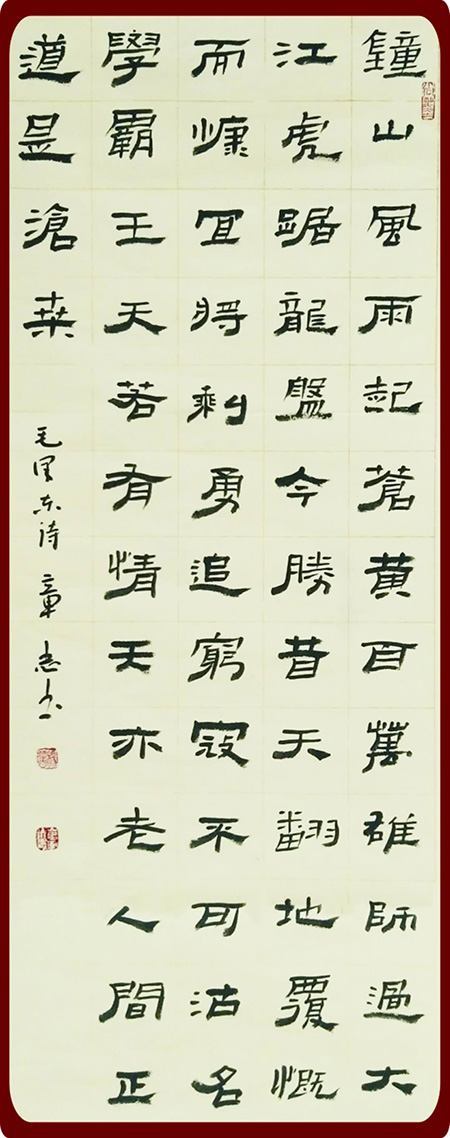 鐘山風雨起蒼黃百萬雄師過大
江虎踞龍盤今勝昔天翻地覆慨
而慷宜將剩勇追窮寇不可沽名
學霸王天若有情天亦老人間正
道是滄桑
毛泽东诗 章志书